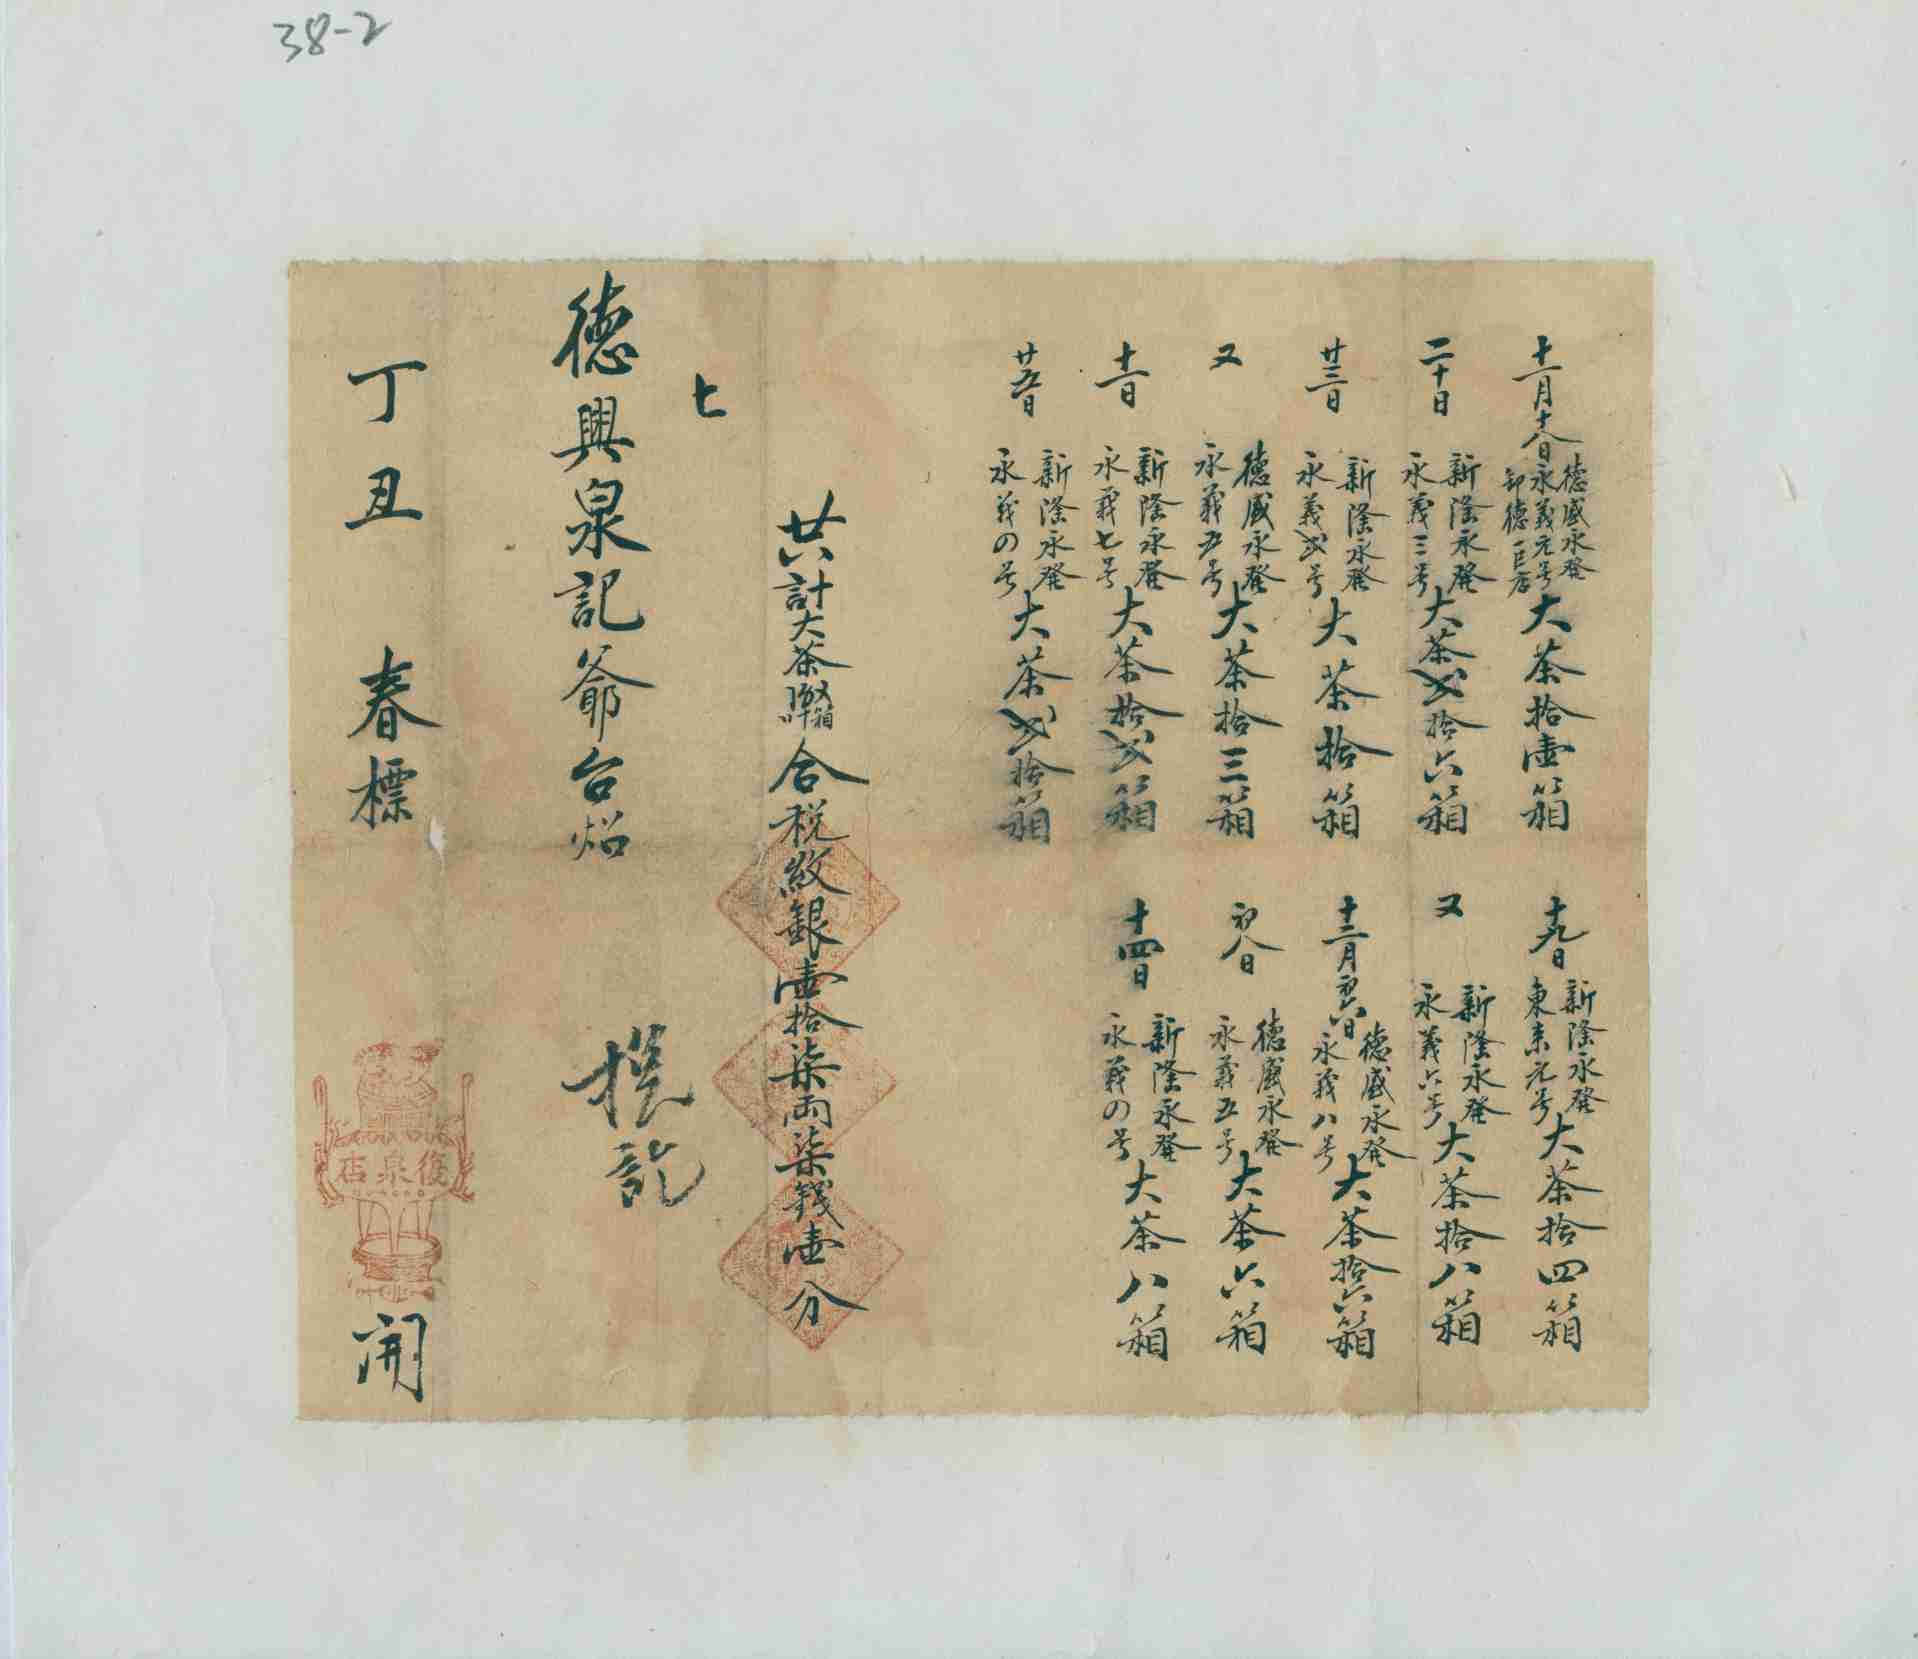 38-2
十一月十八日 德盛永發 永義元号 卸德一巨店 大茶拾壹箱
十九日 新隆永發 東來元号 大茶拾四箱
二十日 新隆永發 永義三号 大茶弐拾六箱
又 新隆永發 永義六号 大茶拾八箱
廿三日 新隆永發 永義弐号 大茶拾箱
十二月初六日 德盛永發 永義八号 大茶拾六箱
又 德盛永發 永義五号 大茶拾三箱
初八日 德盛永發 永義五号 大茶六箱
十一日 新隆永發 永義七号 大茶拾弐箱
十四日 新隆永發 永義の号 大茶八箱
廿五日 新隆永發 永義の号 大茶弐拾箱
共計大茶 合税紋銀壹拾柒兩柒錢壹分
上
德興泉記爺台炤
撥訖
丁丑 春標 復泉店 開